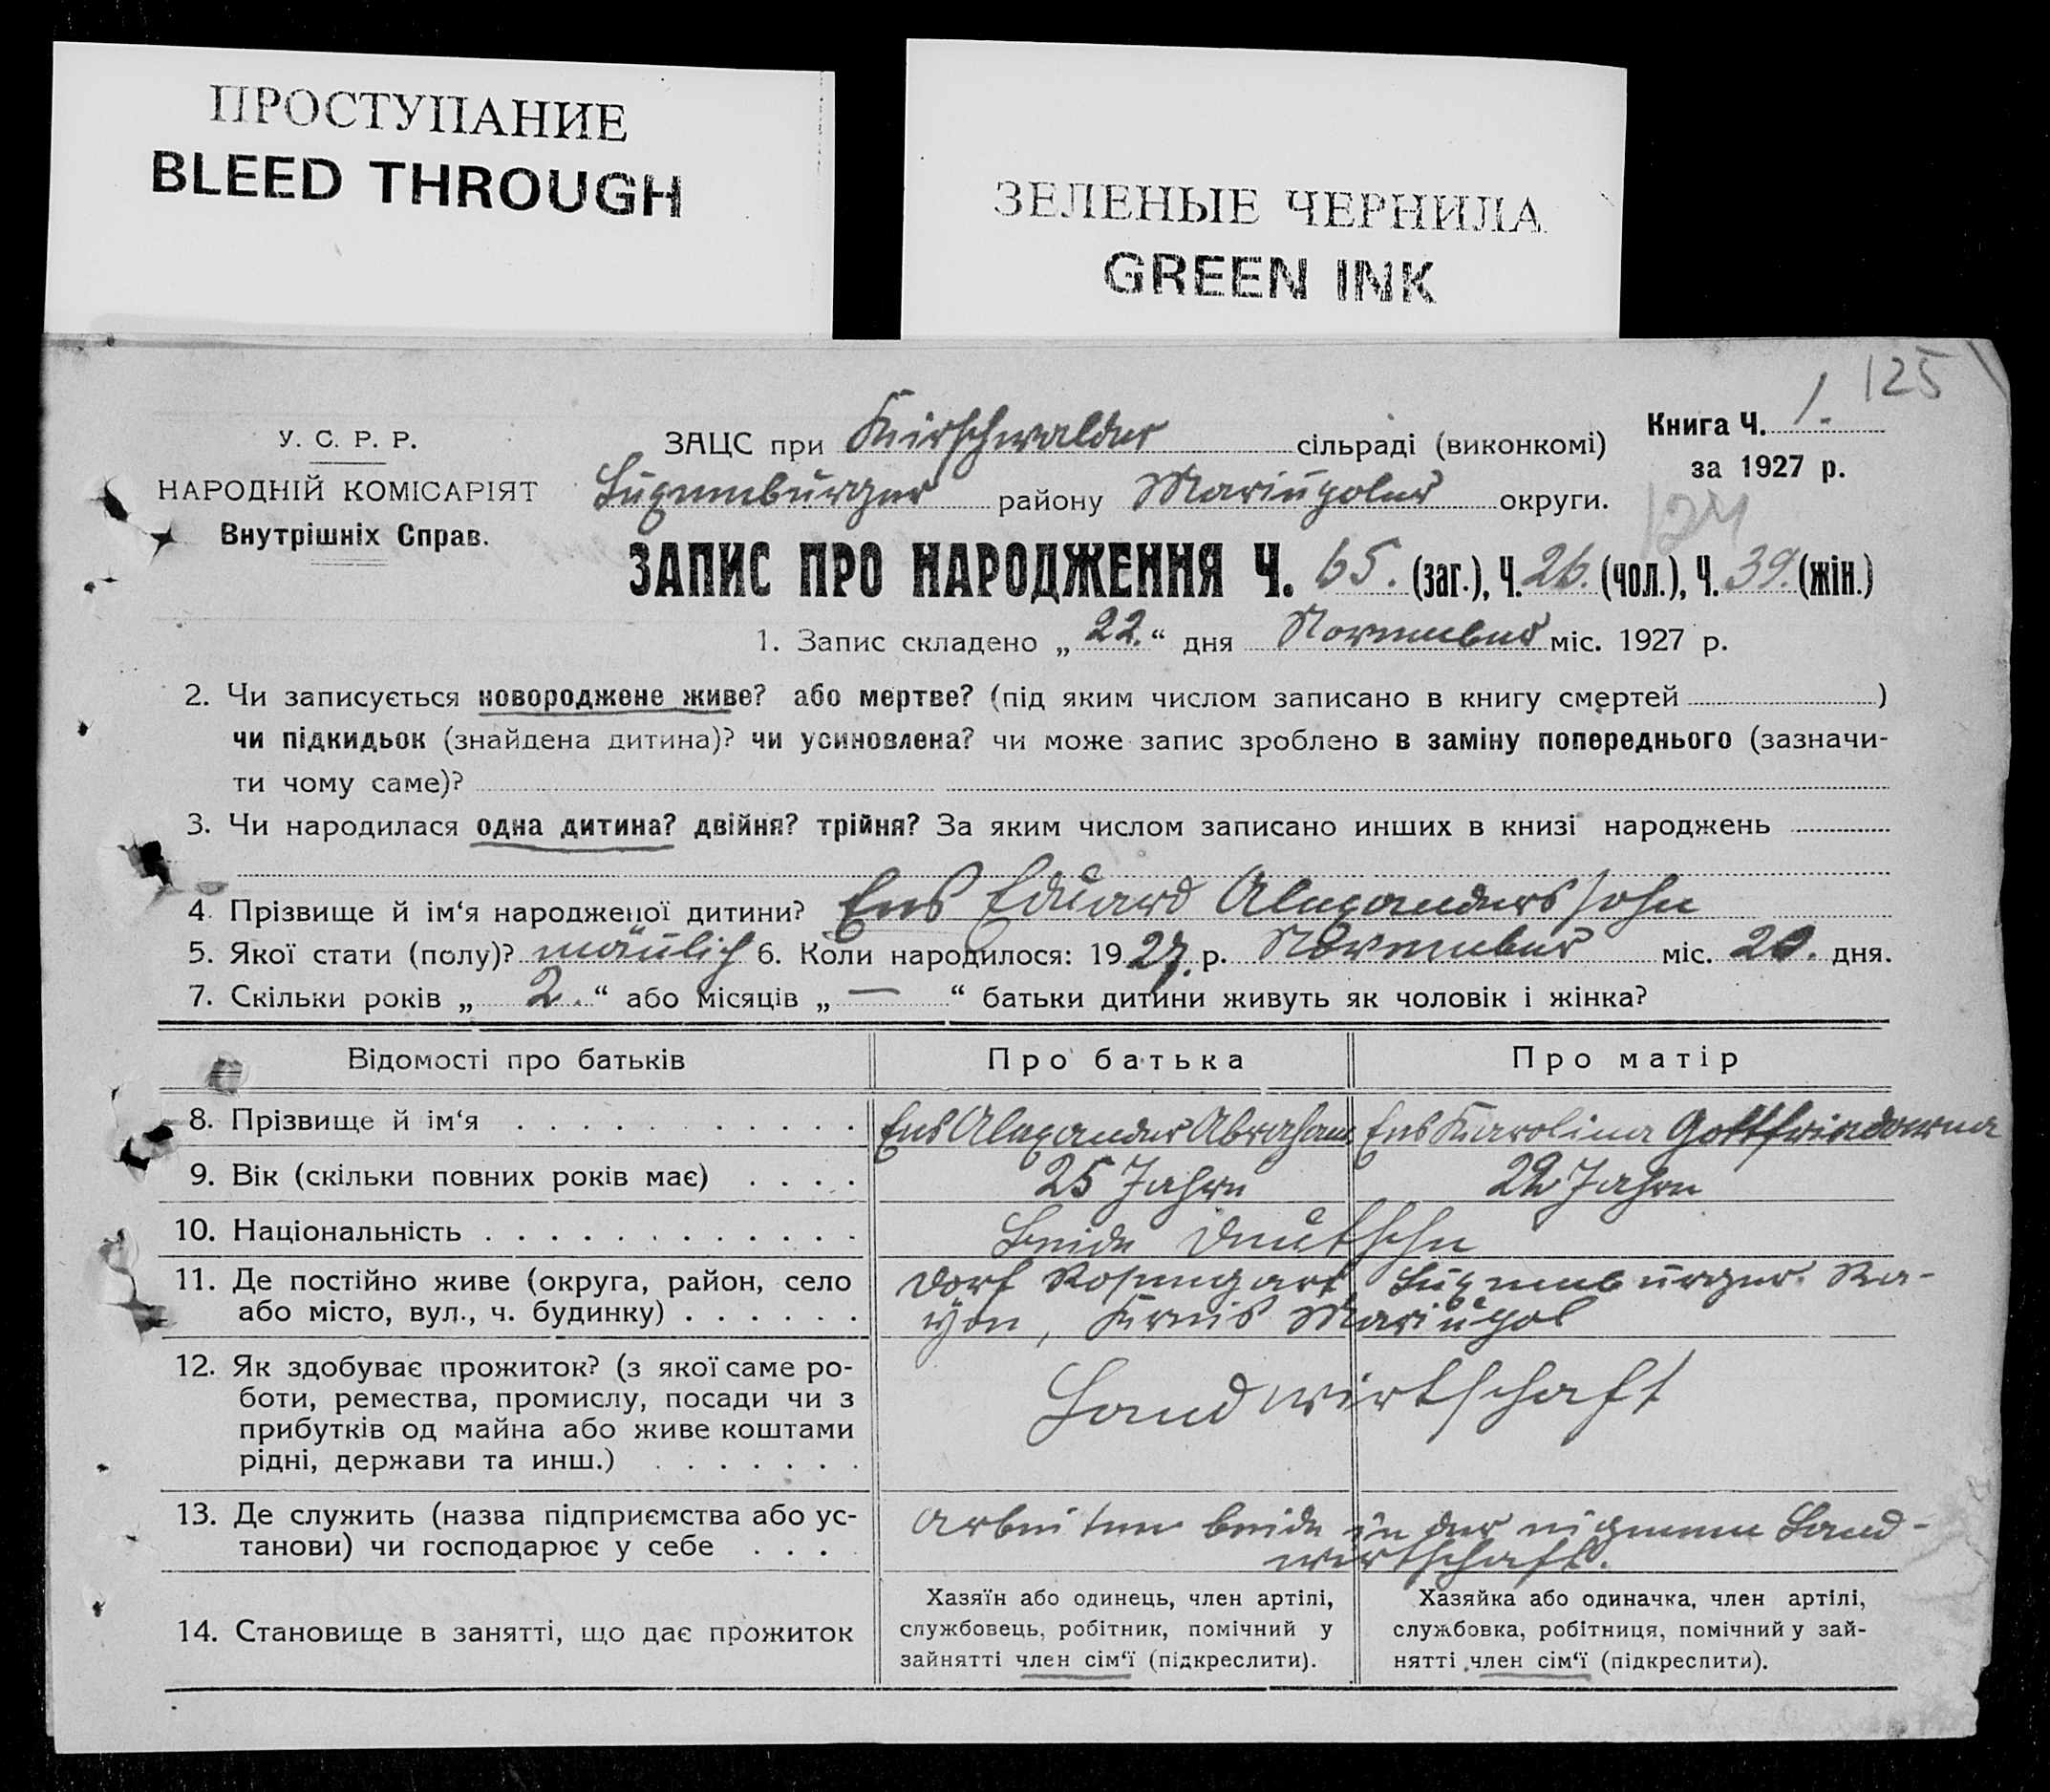 ПРОСТУПАНИЕ
BLEED THROUGH
ЗЕЛЕНЫЕ ЧЕРНИЛА
GREEN INK
125
У. С. Р. Р.
НАРОДНІЙ КОМІСАРІЯТ
Внутрішніх Справ.
ЗАЦС при Kirschwalder сільраді (виконкомі)
Luxemburger району Mariupoler округи.
Книга Ч. 1.
за 1927 р.
124
ЗАПИС ПРО НАРОДЖЕННЯ Ч. 65. (заг.), Ч. 26. (чол.), Ч. 39. (жін.)
1. Запис складено „ 22. “ дня November міс. 1927 р.
2. Чи записується новороджене живе? або мертве? (під яким числом записано в книгу смертей )
чи підкидьок (знайдена дитина)? чи усиновлена? чи може запис зроблено в заміну попереднього (зазначи-
ти чому саме)?
3. Чи народилася одна дитина? двійня? трійня? За яким числом записано инших в книзі народжень
4. Прізвище й ім‘я народженої дитини? Ens Eduard Alexanderssohn
5. Якої стати (полу)? mänlich 6. Коли народилося: 1927. р. November міс. 20. дня.
7. Скільки років „ 2. “ або місяців „ — “ батьки дитини живуть як чоловік і жінка?
Відомості про батьків Про батька Про матір
8. Прізвище й ім‘я Ens Alexander Abraham Ens Karolina Gottfriedowna
9. Вік (скільки повних років має) 25 Jahre 22 Jahre
10. Національність Beide Deutsche
11. Де постійно живе (округа, район, село Dorf Rosengart Luxemburger Ra-
або місто, вул., ч. будинку) yon, Kreis Mariupol
12. Як здобуває прожиток? (з якої саме ро-
боти, ремества, промислу, посади чи з Landwirtschaft
прибутків од майна або живе коштами
рідні, держави та инш.)
13. Де служить (назва підприємства або ус- Arbeiten beide in der eigenen Land-
танови) чи господарює у себе wirtschaft.
14. Становище в занятті, що дає прожиток
Хазяїн або одинець, член артілі,
службовець, робітник, помічний у
зайнятті член сім‘ї (підкреслити).
Хазяйка або одиначка, член артілі,
службовка, робітниця, помічний у зай-
нятті член сім‘ї (підкреслити).